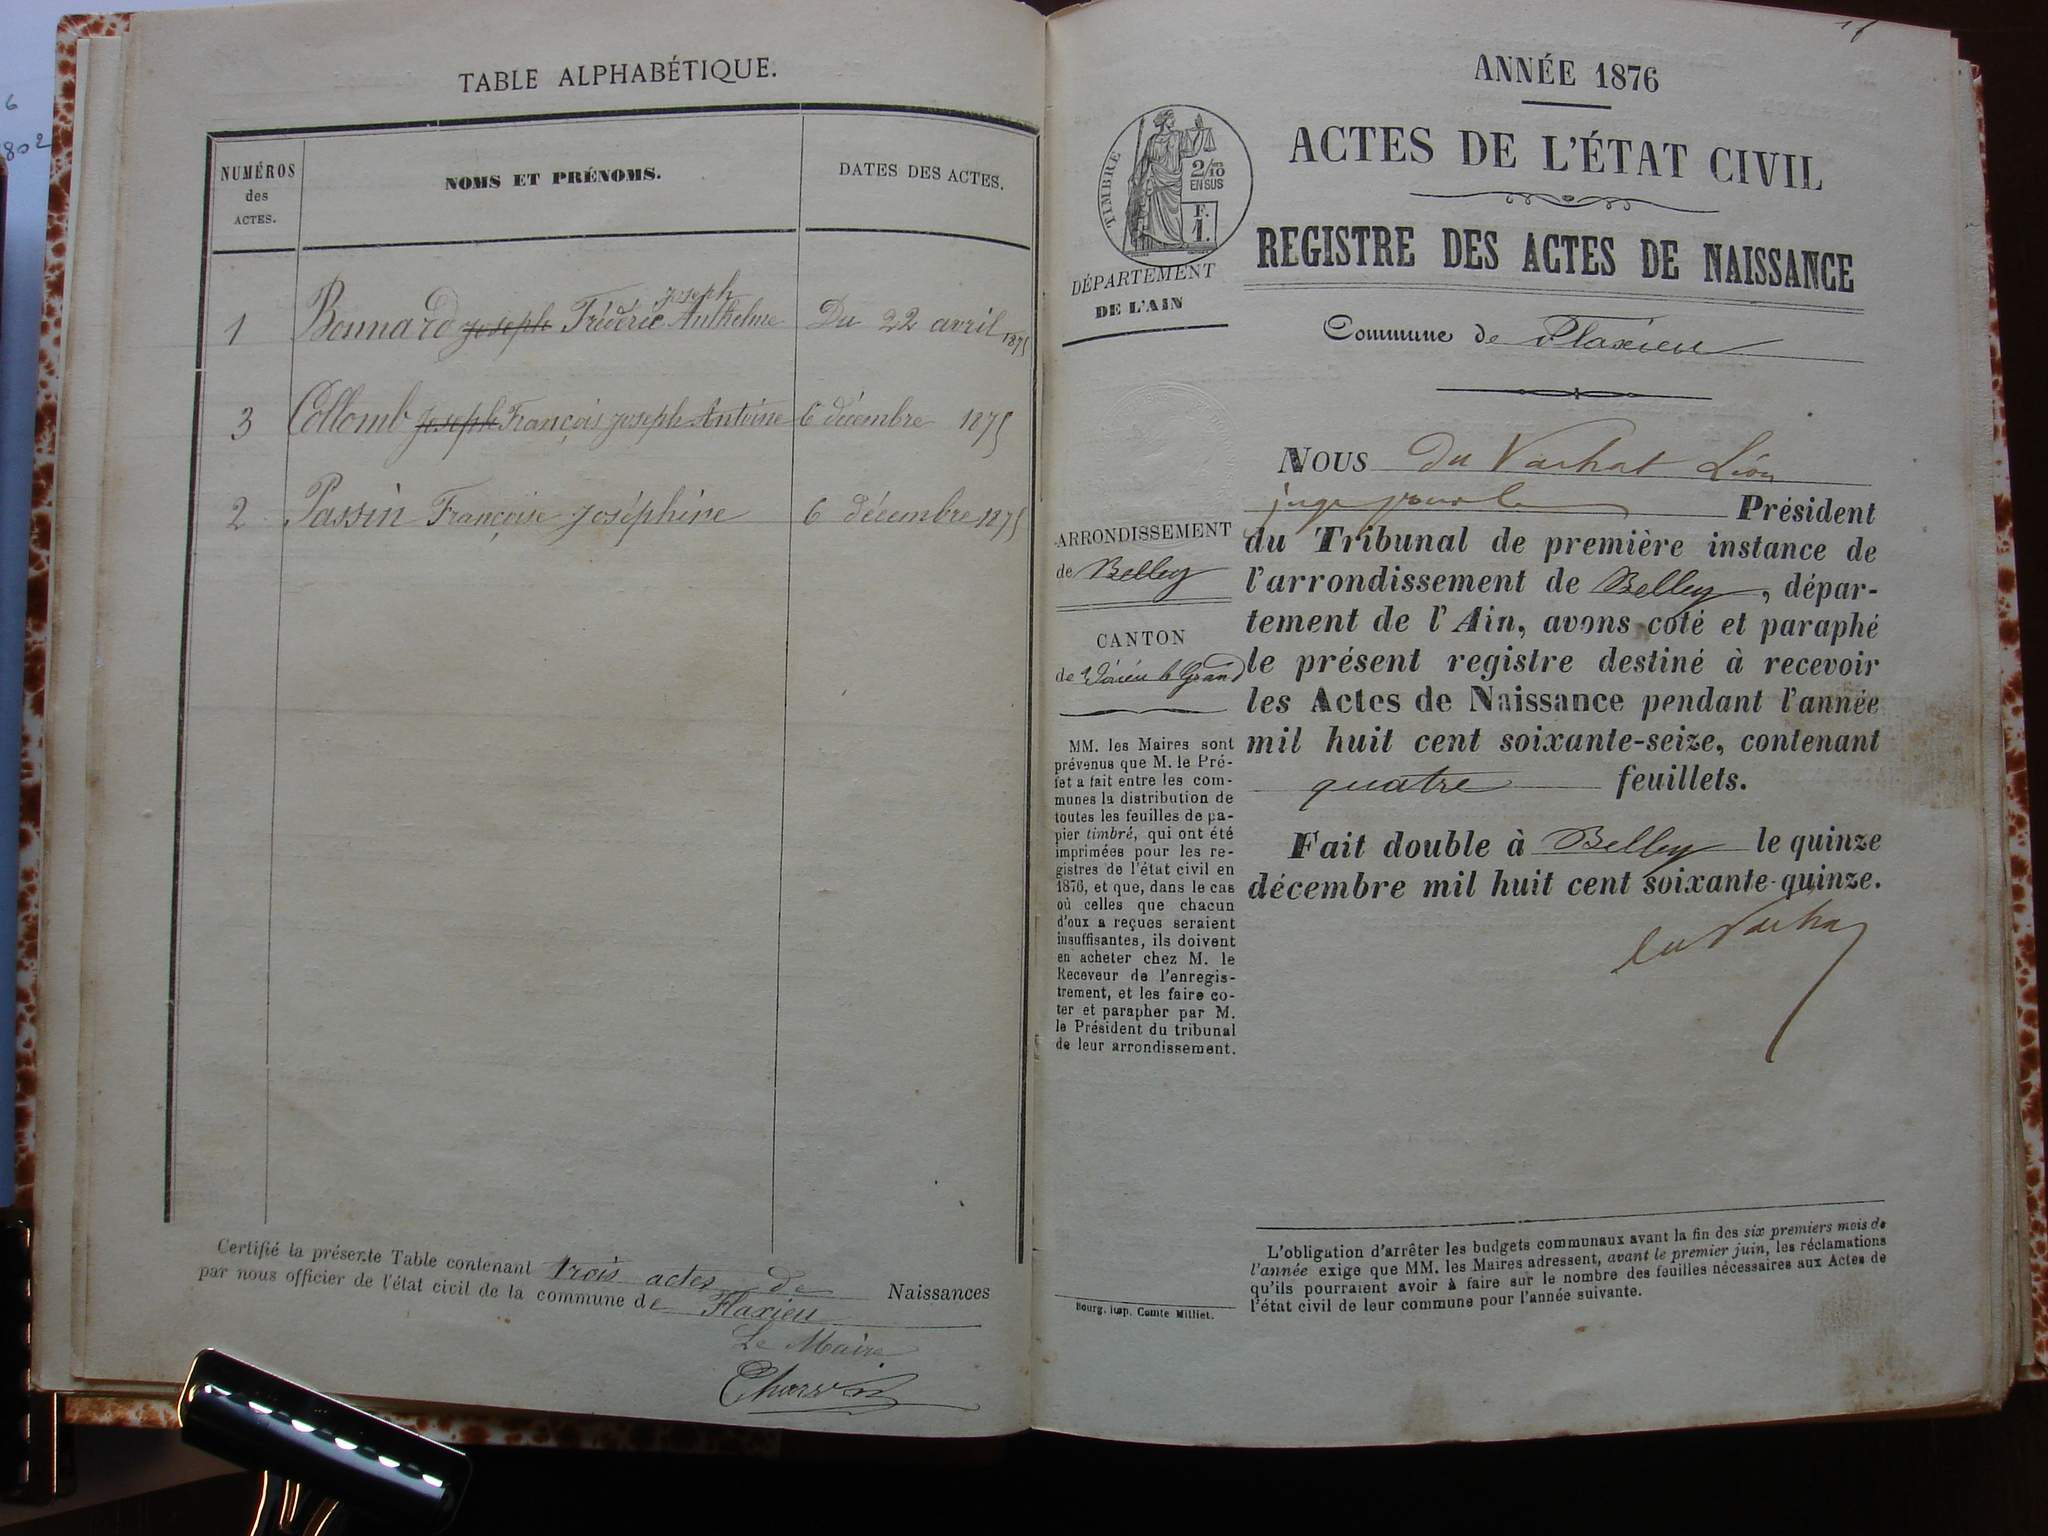 6
802
TABLE ALPHABÉTIQUE.
NUMÉROS
des
ACTES.
NOMS ET PRÉNOMS.
DATES DES ACTES.
joseph
1 Bonnard joseph Frédéric Anthelme Du 22 avril 1875
3 Collomb joseph François joseph Antoine 6 décembre 1875
2 Passin Françoise joséphine 6 décembre 1875
Certifié la présente Table contenant trois actes de Naissances
par nous officier de l'état civil de la commune de Flaxieu
Le Maire
Charvin
ANNÉE 1876
ACTES DE L'ÉTAT CIVIL
REGISTRE DES ACTES DE NAISSANCE
TIMBRE
2/10
EN SUS
F.
1.
DÉPARTEMENT
DE L'AIN
Commune de Flaxieu
ARRONDISSEMENT
de Belley
CANTON
de Virieu le Grand
MM. les Maires sont
prévenus que M. le Pré-
fet a fait entre les com-
munes la distribution de
toutes les feuilles de pa-
pier timbré, qui ont été
imprimées pour les re-
gistres de l'état civil en
1876, et que, dans le cas
où celles que chacun
d'eux a reçues seraient
insuffisantes, ils doivent
en acheter chez M. le
Receveur de l'enregis-
trement, et les faire co-
ter et parapher par M.
le Président du tribunal
de leur arrondissement.
Bourg, imp. Comte Milliet.
NOUS du Vachat Léon
juge pour le Président
du Tribunal de première instance de
l'arrondissement de Belley, dépar-
tement de l'Ain, avons coté et paraphé
le présent registre destiné à recevoir
les Actes de Naissance pendant l'année
mil huit cent soixante-seize, contenant
quatre feuillets.
Fait double à Belley le quinze
décembre mil huit cent soixante-quinze.
du Vachat
L'obligation d'arrêter les budgets communaux avant la fin des six premiers mois de
l'année exige que MM. les Maires adressent, avant le premier juin, les réclamations
qu'ils pourraient avoir à faire sur le nombre des feuilles nécessaires aux Actes de
l'état civil de leur commune pour l'année suivante.